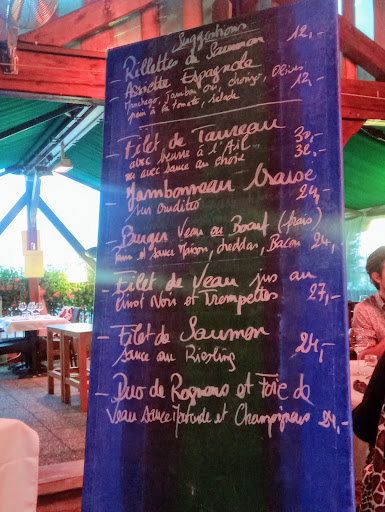 Suggestions
- Rillettes de Saumon 12,-
- Assiette Espagnole
Manchego, Jambon Cru, chorizo, Olives 12,-
pain à la tomate, salade
- Filet de Taureau
avec beurre à l'Ail 30,-
ou avec sauce au choix 32,-
- Jambonneau Braisé
sur Crudités 24,-
- Burger Veau ou Boeuf (frais)
pain et sauce Maison, cheddar, Bacon 24,-
- Filet de Veau jus au
Pinot Noir et Trompettes 27,-
- Filet de Saumon 24,-
sauce au Riesling
- Duo de Rognons et Foie de
Veau sauce Moutarde et Champignons 24,-